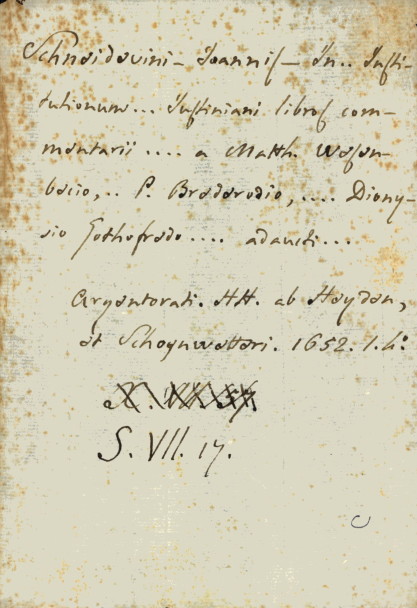 Schneidevini – Joannis – In.. Insti-
tutionum... Justiniani libros com-
mentarii .... a Matth. Wesen-
becio,.. P. Brederodio, .... Diony-
sio Gothofredo .... adaucti....
Argentorati. HH. ab Heyden,
et Scheynwetteri. 1652. 1. 4:
S. VII. 17.